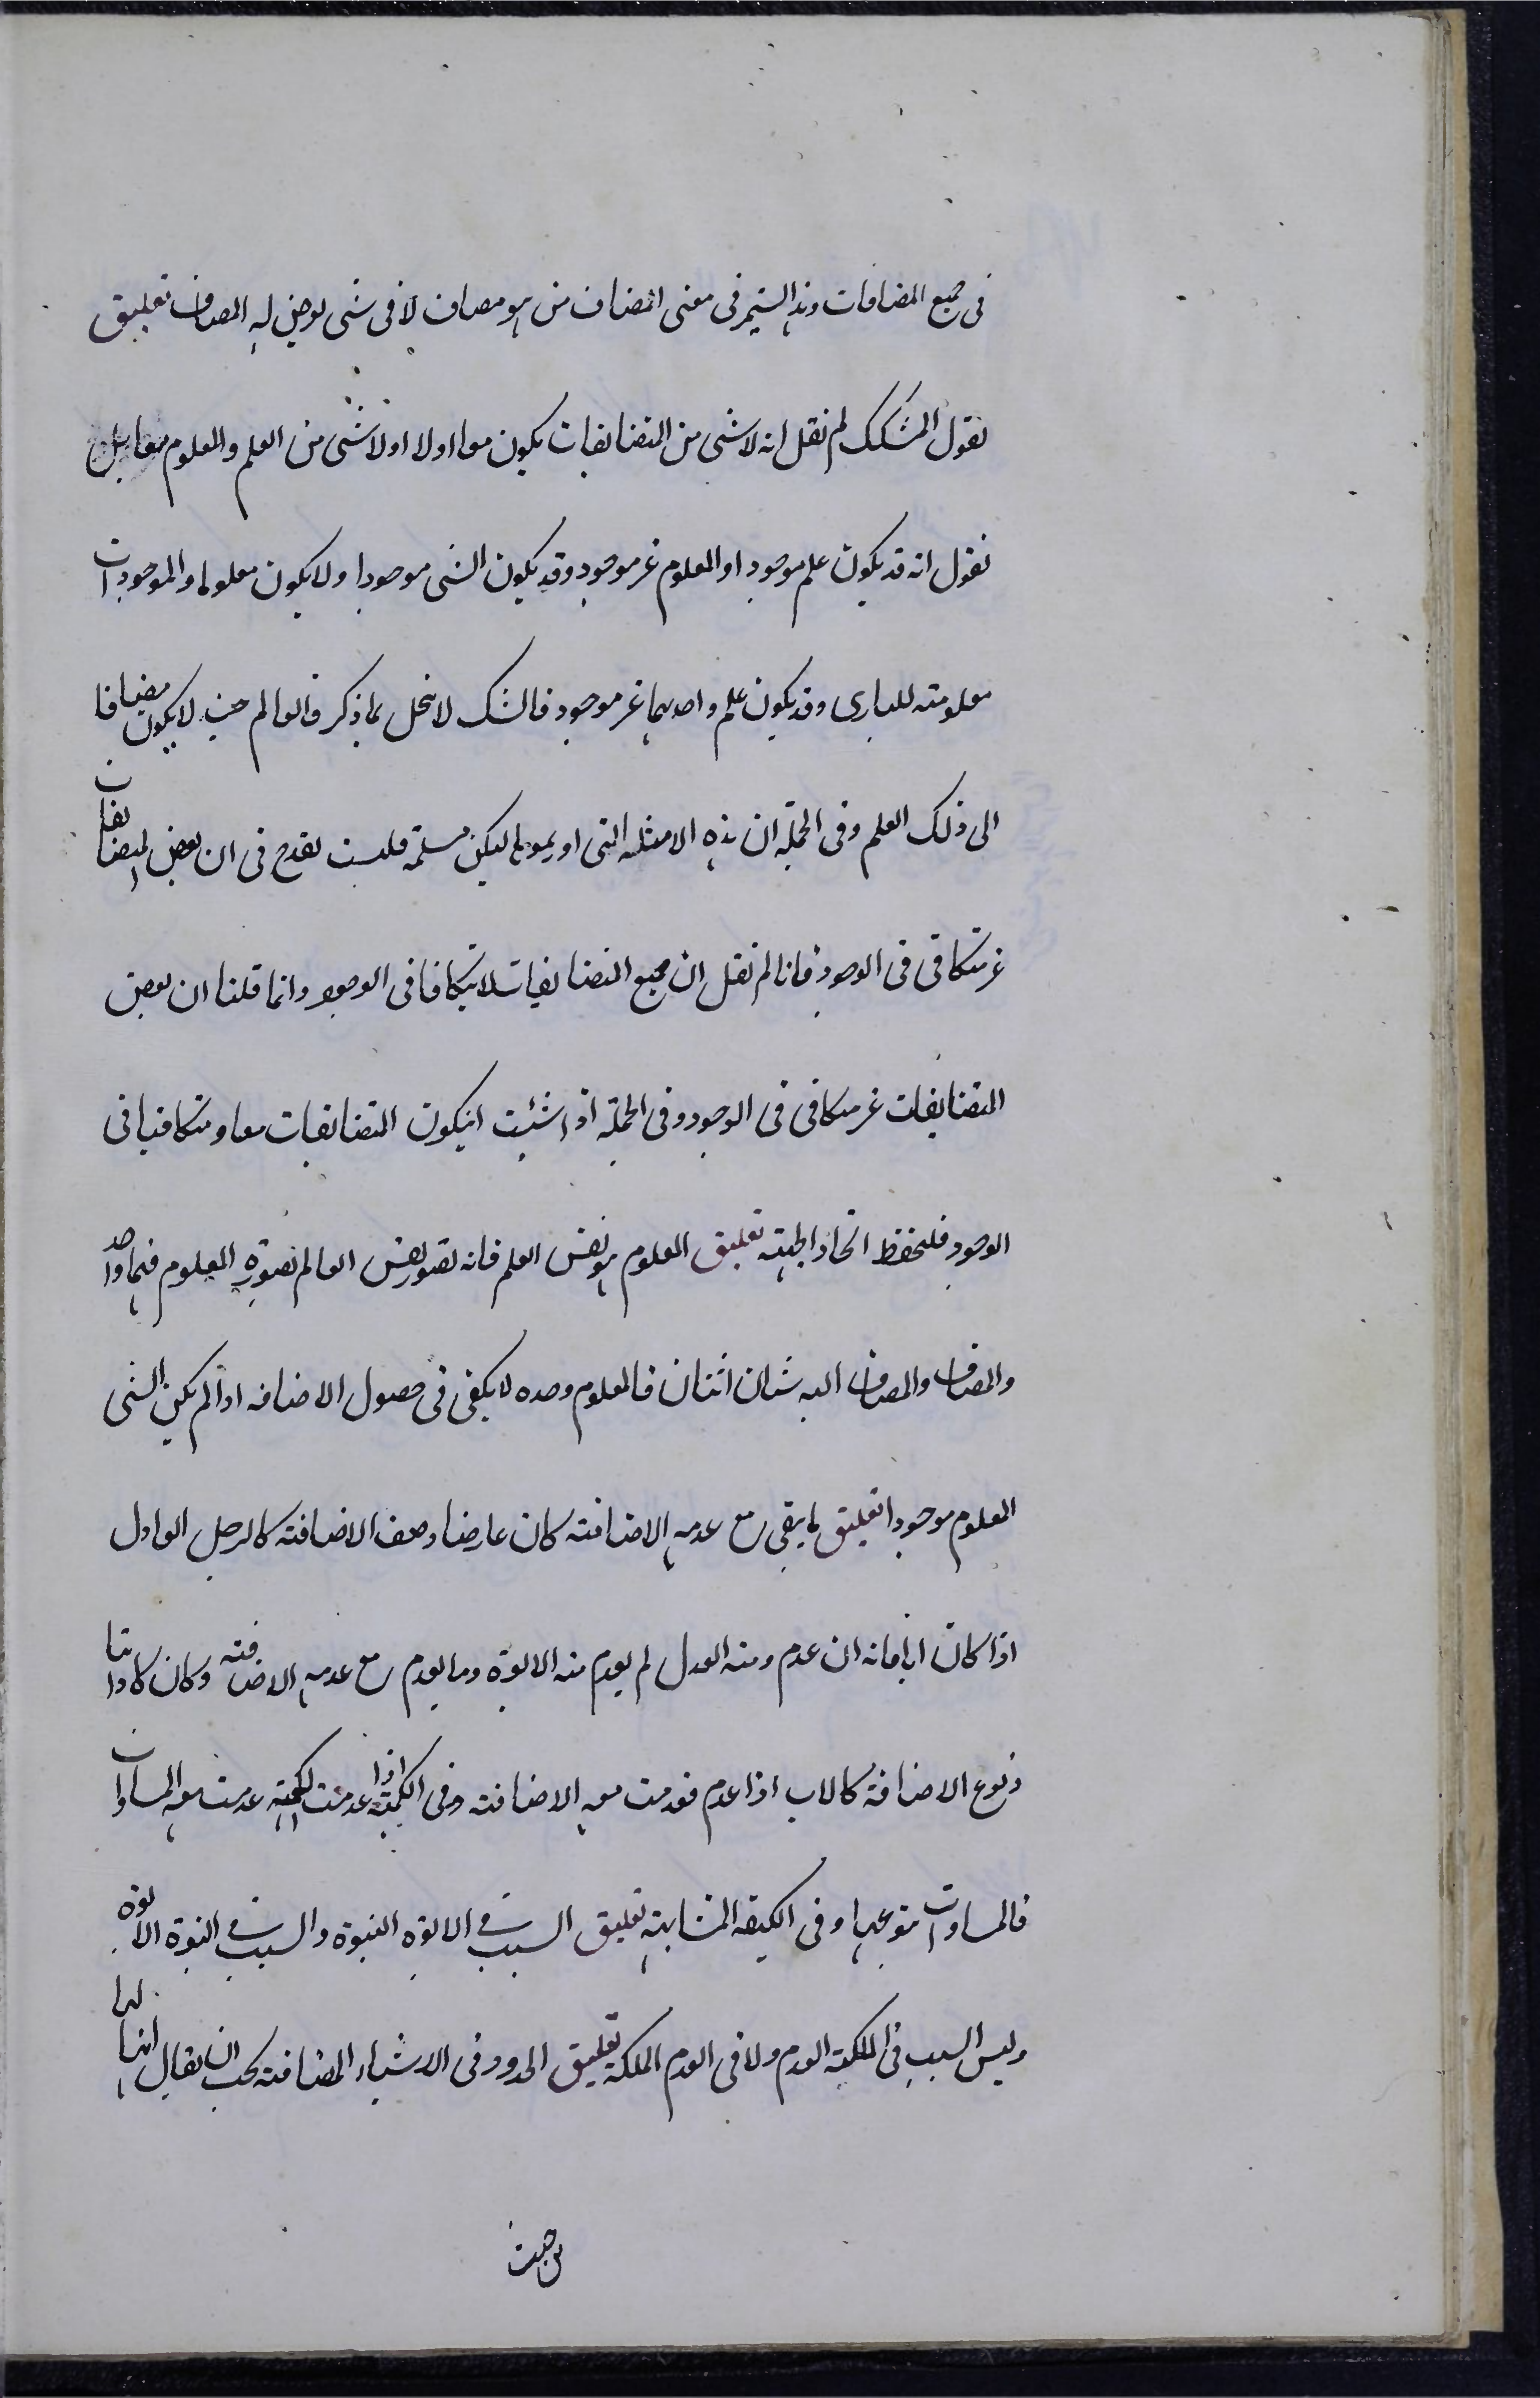 فى جميع المضافات وهذا يستمر فى معنى المضاف من هو مضاف لا فى شى يعرض له المضاف تعليق
نقول المشكك لم نقل انه لا شى من المتضايفات يكون معا اولا او لا شى من العلم والمعلوم معا بل
نقول انه قد يكون علم موجودا والمعلوم غير موجود وقد يكون الشى موجودا ولا يكون معلوما والموجودات
معلومة للبارى وقد يكون علم واحدهما غير موجود فالشك لا ينحل بما ذكر فالعالم حينئذ لا يكون مضافا
الى ذلك العلم وفى الجملة ان هذه الامثلة التى اوردوها ليكن مسلمة فليست تقدح فى ان بعض المتضايفات
غير متكافى فى الوجود فانا لم نقل ان جميع المتضايفات لا يتكافا فى الوجود وانما قلنا ان بعض
المتضايفات غير متكافى فى الوجود وفى الجملة اذا شئت ان يكون المتضايفات معا ومتكافيا فى
الوجود فلتحفظ اتحاد الجهة تعليق المعلوم هو نفس العلم فانه تصور نفس العالم بصورة المعلوم فهما واحد
والمضاف والمضاف اليه شيان اثنان فالمعلوم وحده لا يكفى فى حصول الاضافه اذا لم يكن الشى
المعلوم موجودا تعليق ما يبقى مع عدمه الاضافة كان عارضا وصف الاضافة كالرجل العادل
اذا كان ابا فانه ان عدم منه العدل لم يعدم منه الابوة وما يعدم مع عدمه الاضافة وكان كاذاتا
فنوع الاضافة كالاب اذا عدم فعدمت معه الاضافة وفى الكمية اذا عدمت الكمية عدمت معها المساوات
فالمساوات نوعها وفى الكيفه المشابهة تعليق السبب فى الابوة البنوة والسبب فى البنوة الابوة
وليس السبب فى الملكة العدم ولا فى العدم الملكة تعليق الحدود فى الاشياء المضافة يجب ان يقال انها لها
من حيث